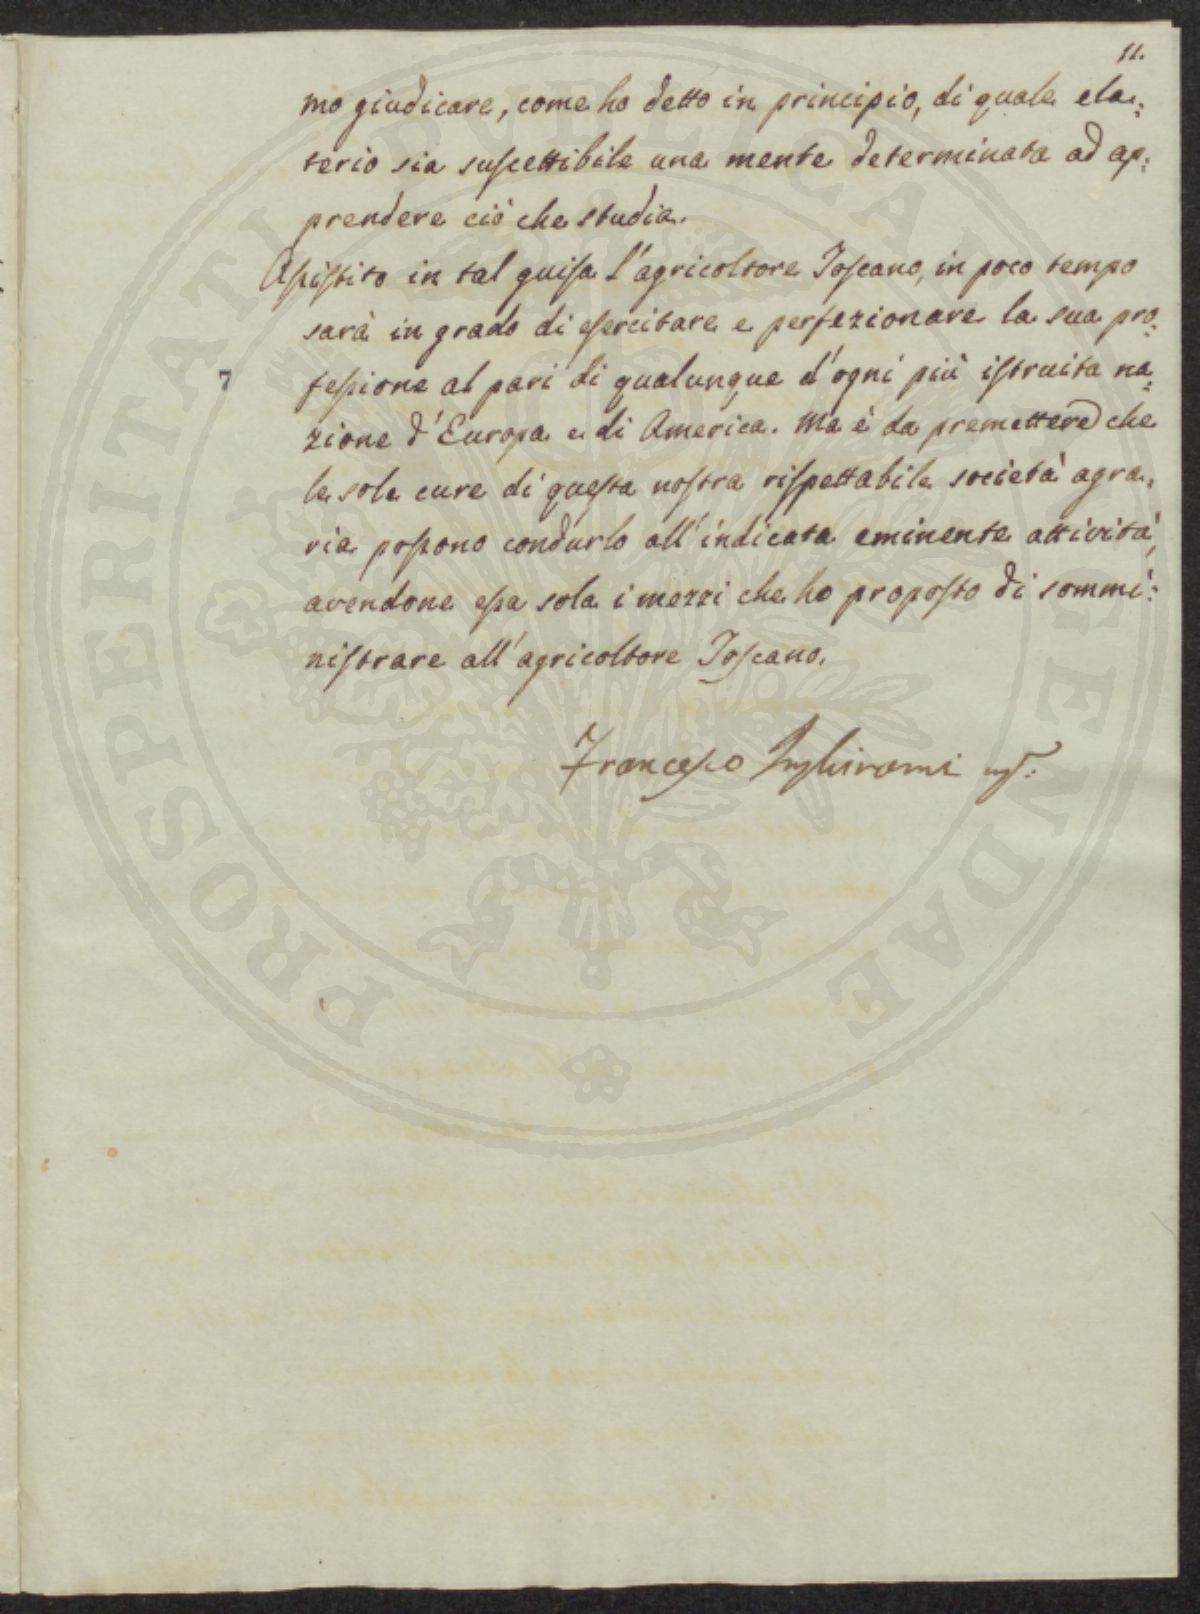 11.
mo giudicare, come ho detto in principio, di quale ela:
terio sia suscettibile una mente determinata ad ap:
prendere ciò che studia.
Assistito in tal guisa l'agricoltore Toscano, in poco tempo
sarà in grado di esercitare e perfezionare la sua pro:
7
fessione al pari di qualunque d'ogni più istruita na:
zione d'Europa e di America. Ma è da premettere che
le sole cure di questa nostra rispettabile società agra:
ria possono condurlo all'indicata eminente attività,
avendone essa sola i mezzi che ho proposto di sommi:
nistrare all'agricoltore Toscano.
Francesco Inghirami
PROSPERITATI PUBLICAE AUGENDAE